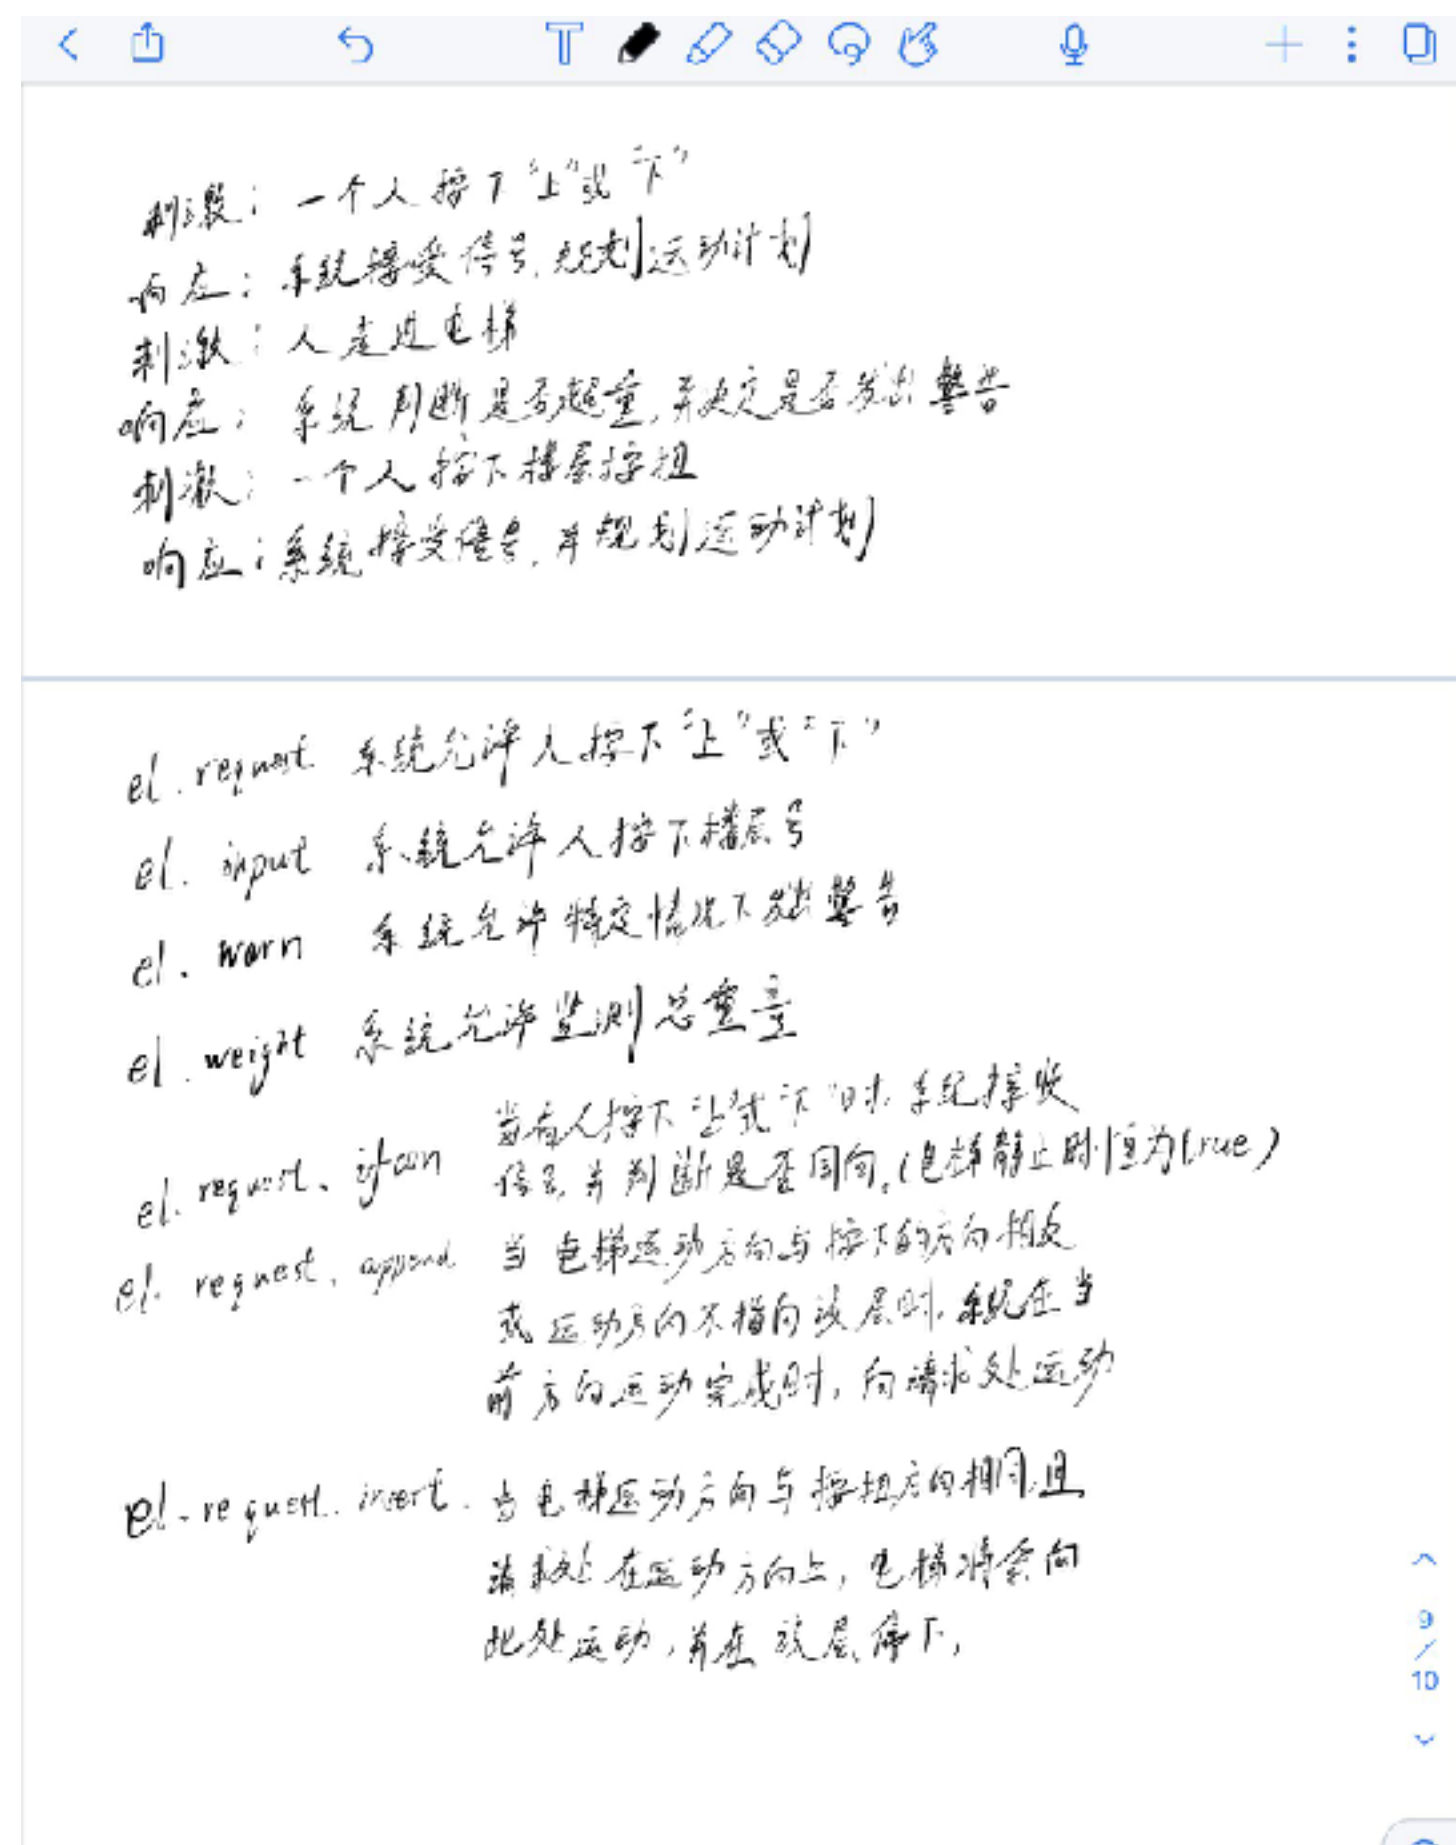 刺激：一个人按下“上”或“下”
响应：系统接受信号,规划运动计划
刺激：人走进电梯
响应：系统判断是否超重,并决定是否发出警告
刺激：一个人按下楼层按扭
响应：系统接受信号,并规划运动计划
el.request 系统允许人按下“上”或“下”
el. input 系统允许人按下楼层号
el. warn 系统允许特定情况下发出警告
el. weight 系统允许监测总重量
当有人按下“上”或“下”时,系统接收
el. request. ifcan 信号,并判断是否同向,(电梯静止时恒为true)
el. request. append 当电梯运动方向与按下的方向相反
或运动方向不指向该层时,系统在当
前方向运动完成时,向请求处运动
el. request. insert. 当电梯运动方向与按扭方向相同,且
请求处在运动方向上,电梯将会向
此处运动,并在该层停下,
9
/
10